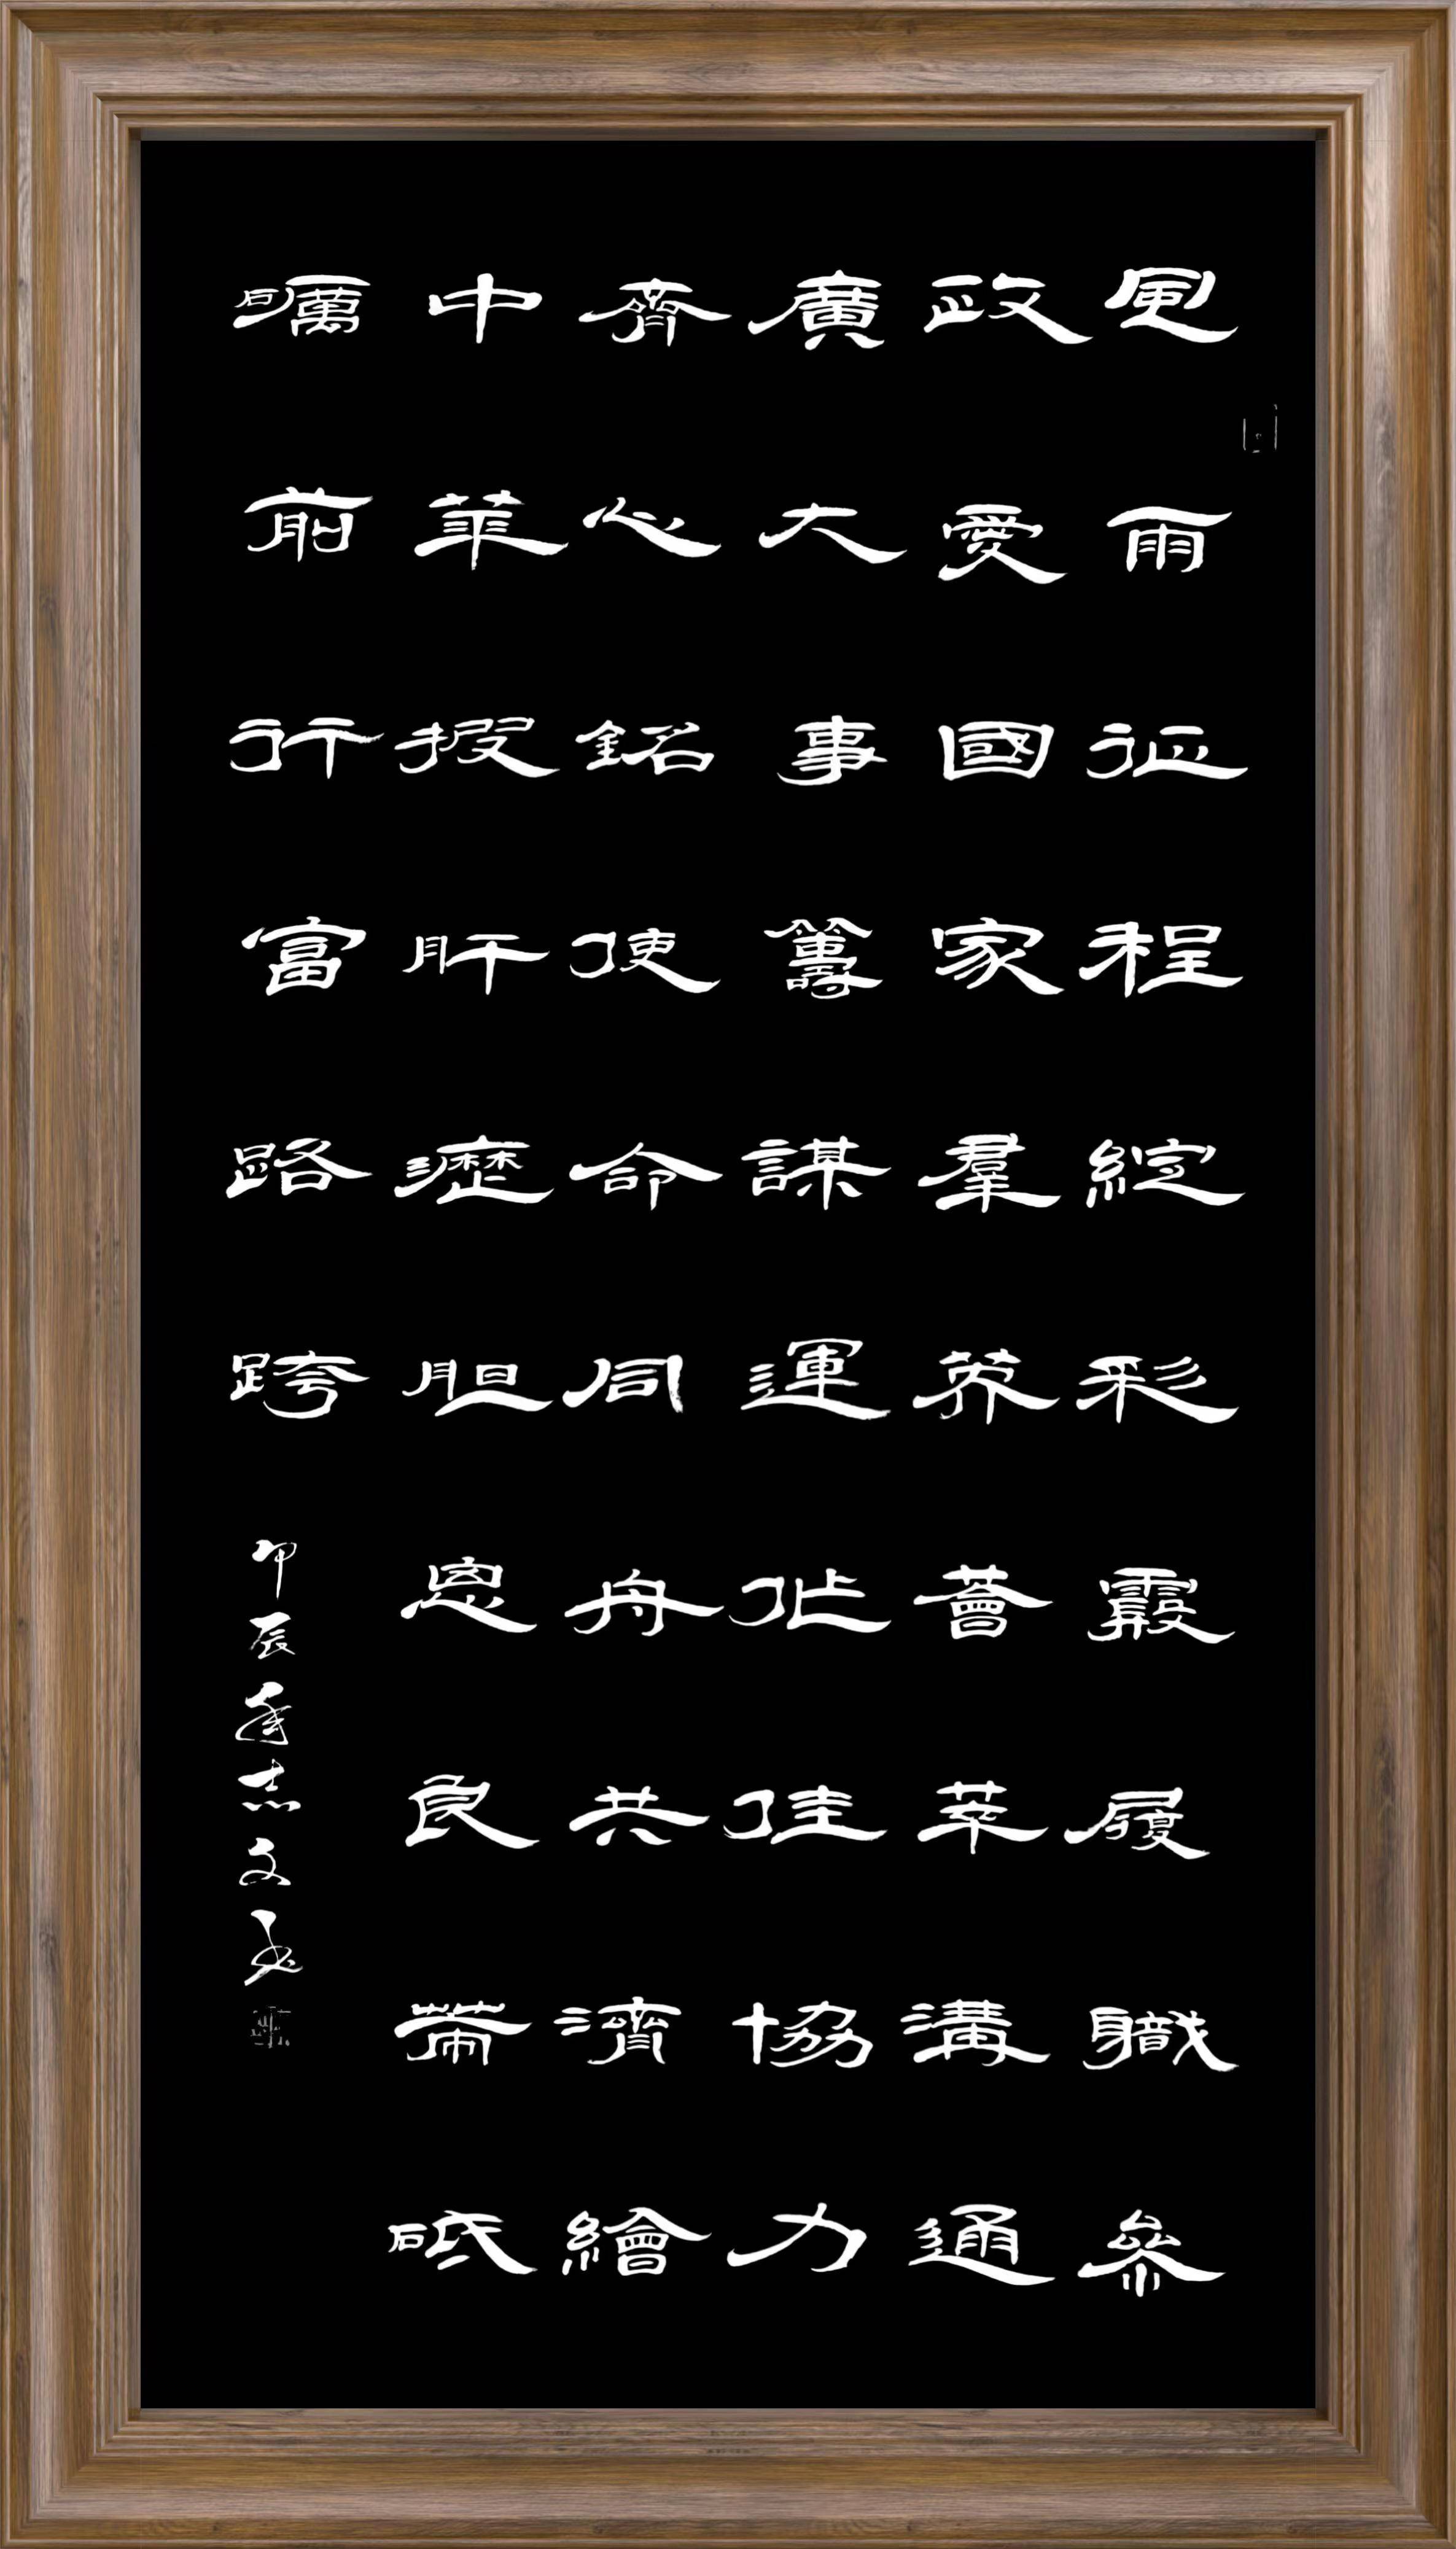 風雨征程綻彩霞履職參
政愛國家羣英薈萃溝通
廣大事籌謀運作佳協力
齊心銘使命同舟共濟繪
中華披肝瀝胆恩良荣砥
礪前行富路跨
甲辰年志文書